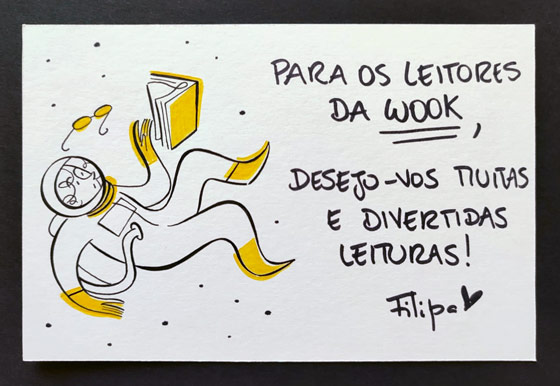 PARA OS LEITORES
DA WOOK,
DESEJO-VOS MUITAS
E DIVERTIDAS
LEITURAS!
Filipa